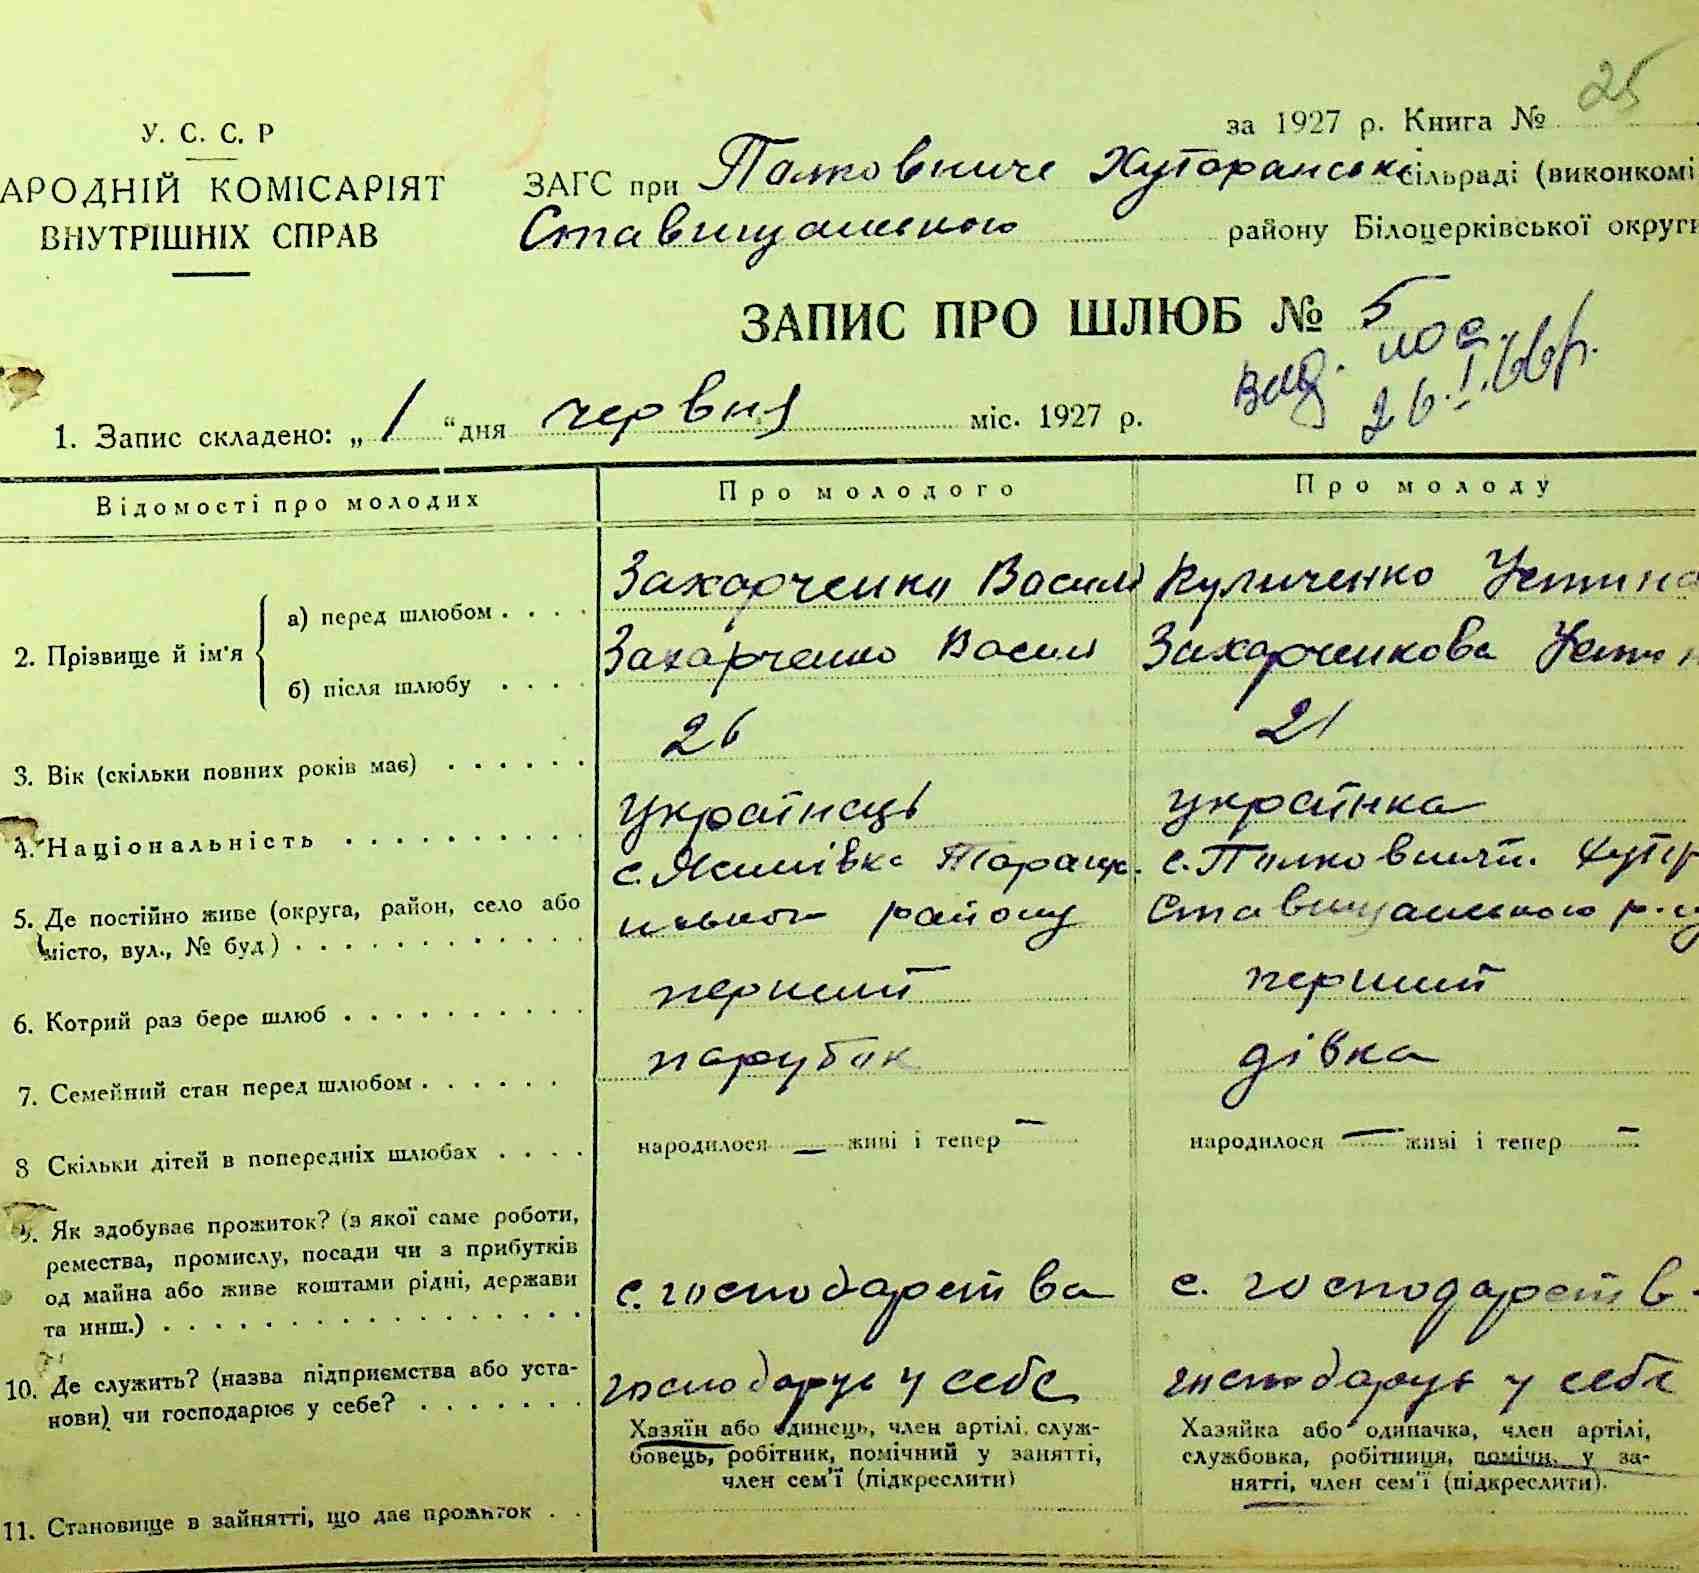 25
У. С. С. Р
за 1927 р. Книга №
АРОДНІЙ КОМІСАРІЯТ
ВНУТРІШНІХ СПРАВ
ЗАГС при Палковниче Хуторанські сільраді (виконкомі
Ставищанського району Білоцерківської округи
ЗАПИС ПРО ШЛЮБ № 5
вид. пос.
26.I.66р.
1. Запис складено: „ 1 “ дня червня міс. 1927 р.
Відомості про молодих Про молодого Про молоду
2. Прізвище й ім'я
а) перед шлюбом . . . . Захарченко Василь Куличенко Устина
б) після шлюбу . . . . Захарченко Васил Захарченкова Устин
3. Вік (скільки повних років має) . . . . . . 26 21
4. Національність . . . . . . . . . . українець українка
5. Де постійно живе (округа, район, село або місто, вул., № буд.) . . . . . . . . . . . .
с. Яснівка Таращ-
ського району
с. Палковнич. Хутір
Ставищанського р-у
6. Котрий раз бере шлюб . . . . . . . . . . перший перший
7. Семейний стан перед шлюбом . . . . . . парубок дівка
8 Скільки дітей в попередніх шлюбах . . . . народилося — живі і тепер — народилося — живі і тепер —
9. Як здобуває прожиток? (з якої саме роботи,
ремества, промислу, посади чи з прибутків
од майна або живе коштами рідні, держави
та инш.) . . . . . . . . . . . . . . . . с. господарства с. господарств
10. Де служить? (назва підприємства або уста-
нови) чи господарює у себе? . . . . . . . господарує у себе господарує у себе
Хазяїн або одинець, член артілі, служ-
бовець, робітник, помічний у занятті,
член сем'ї (підкреслити)
Хазяйка або одиначка, член артілі,
службовка, робітниця, помічн. у за-
нятті, член сем'ї (підкреслити).
11. Становище в зайнятті, що дає прожиток . .